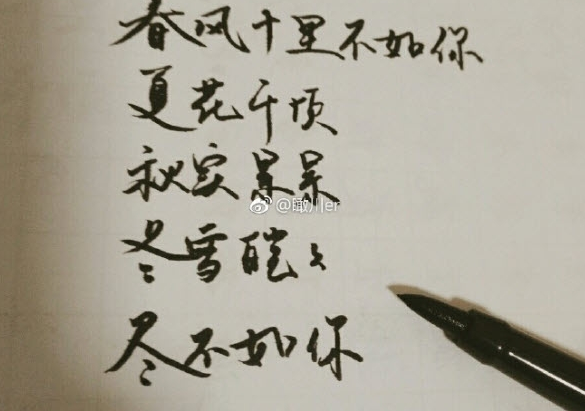 春风十里不如你
夏花千顷
秋实累累
@瞰川er
冬雪皑々
尽不如你